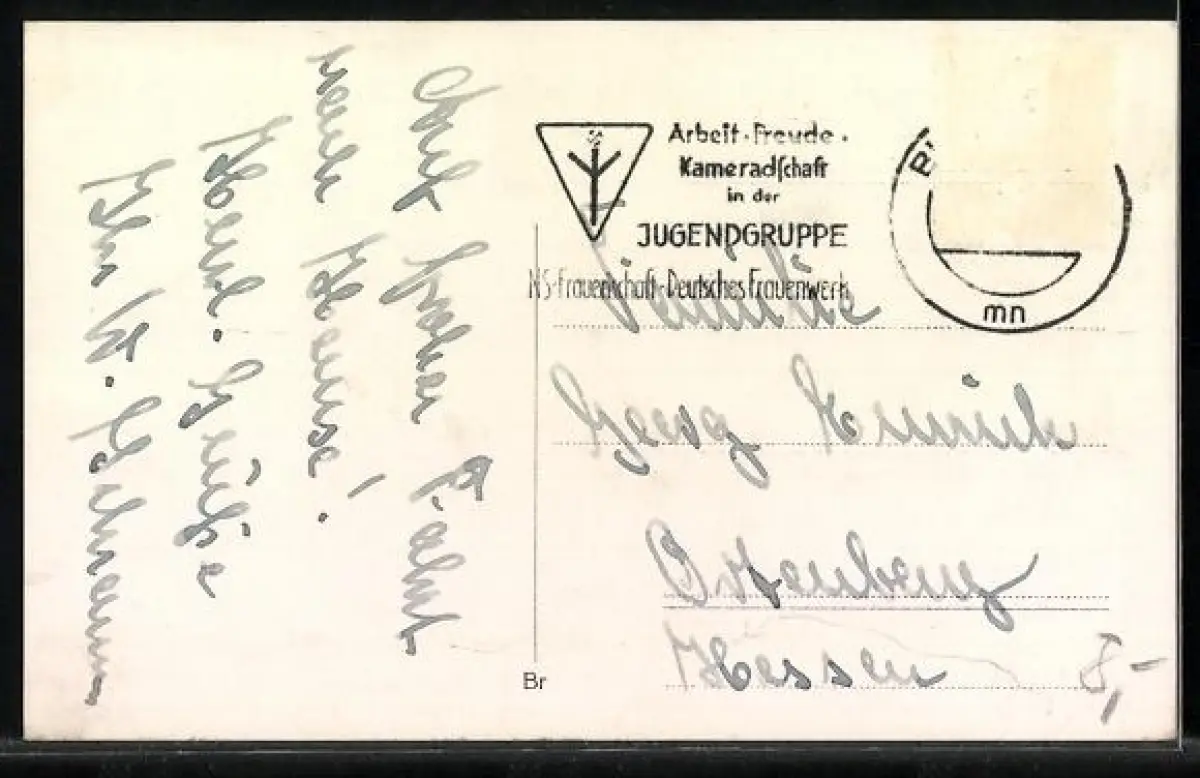 Auf froher Fahrt
nach Hause!
Herzl. Grüße
Ihr W. Schramm
Arbeit · Freude ·
Kameradschaft
in der
JUGENDGRUPPE
NS-Frauenschaft · Deutsches Frauenwerk
mn
Familie
Georg Heinrich
Ortenberg
Hessen
Br